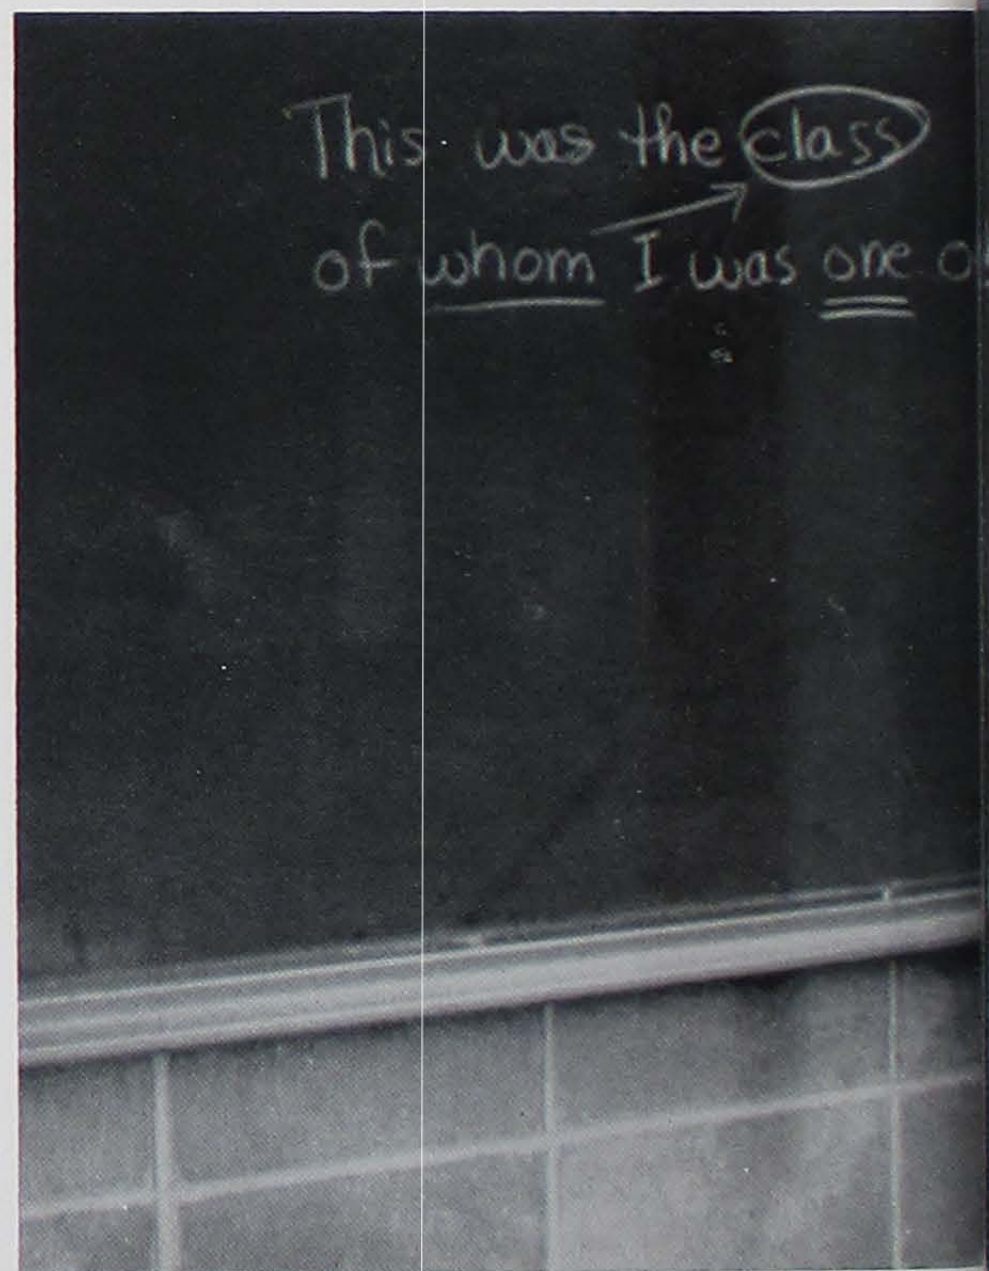 This was the class
of whom I was one